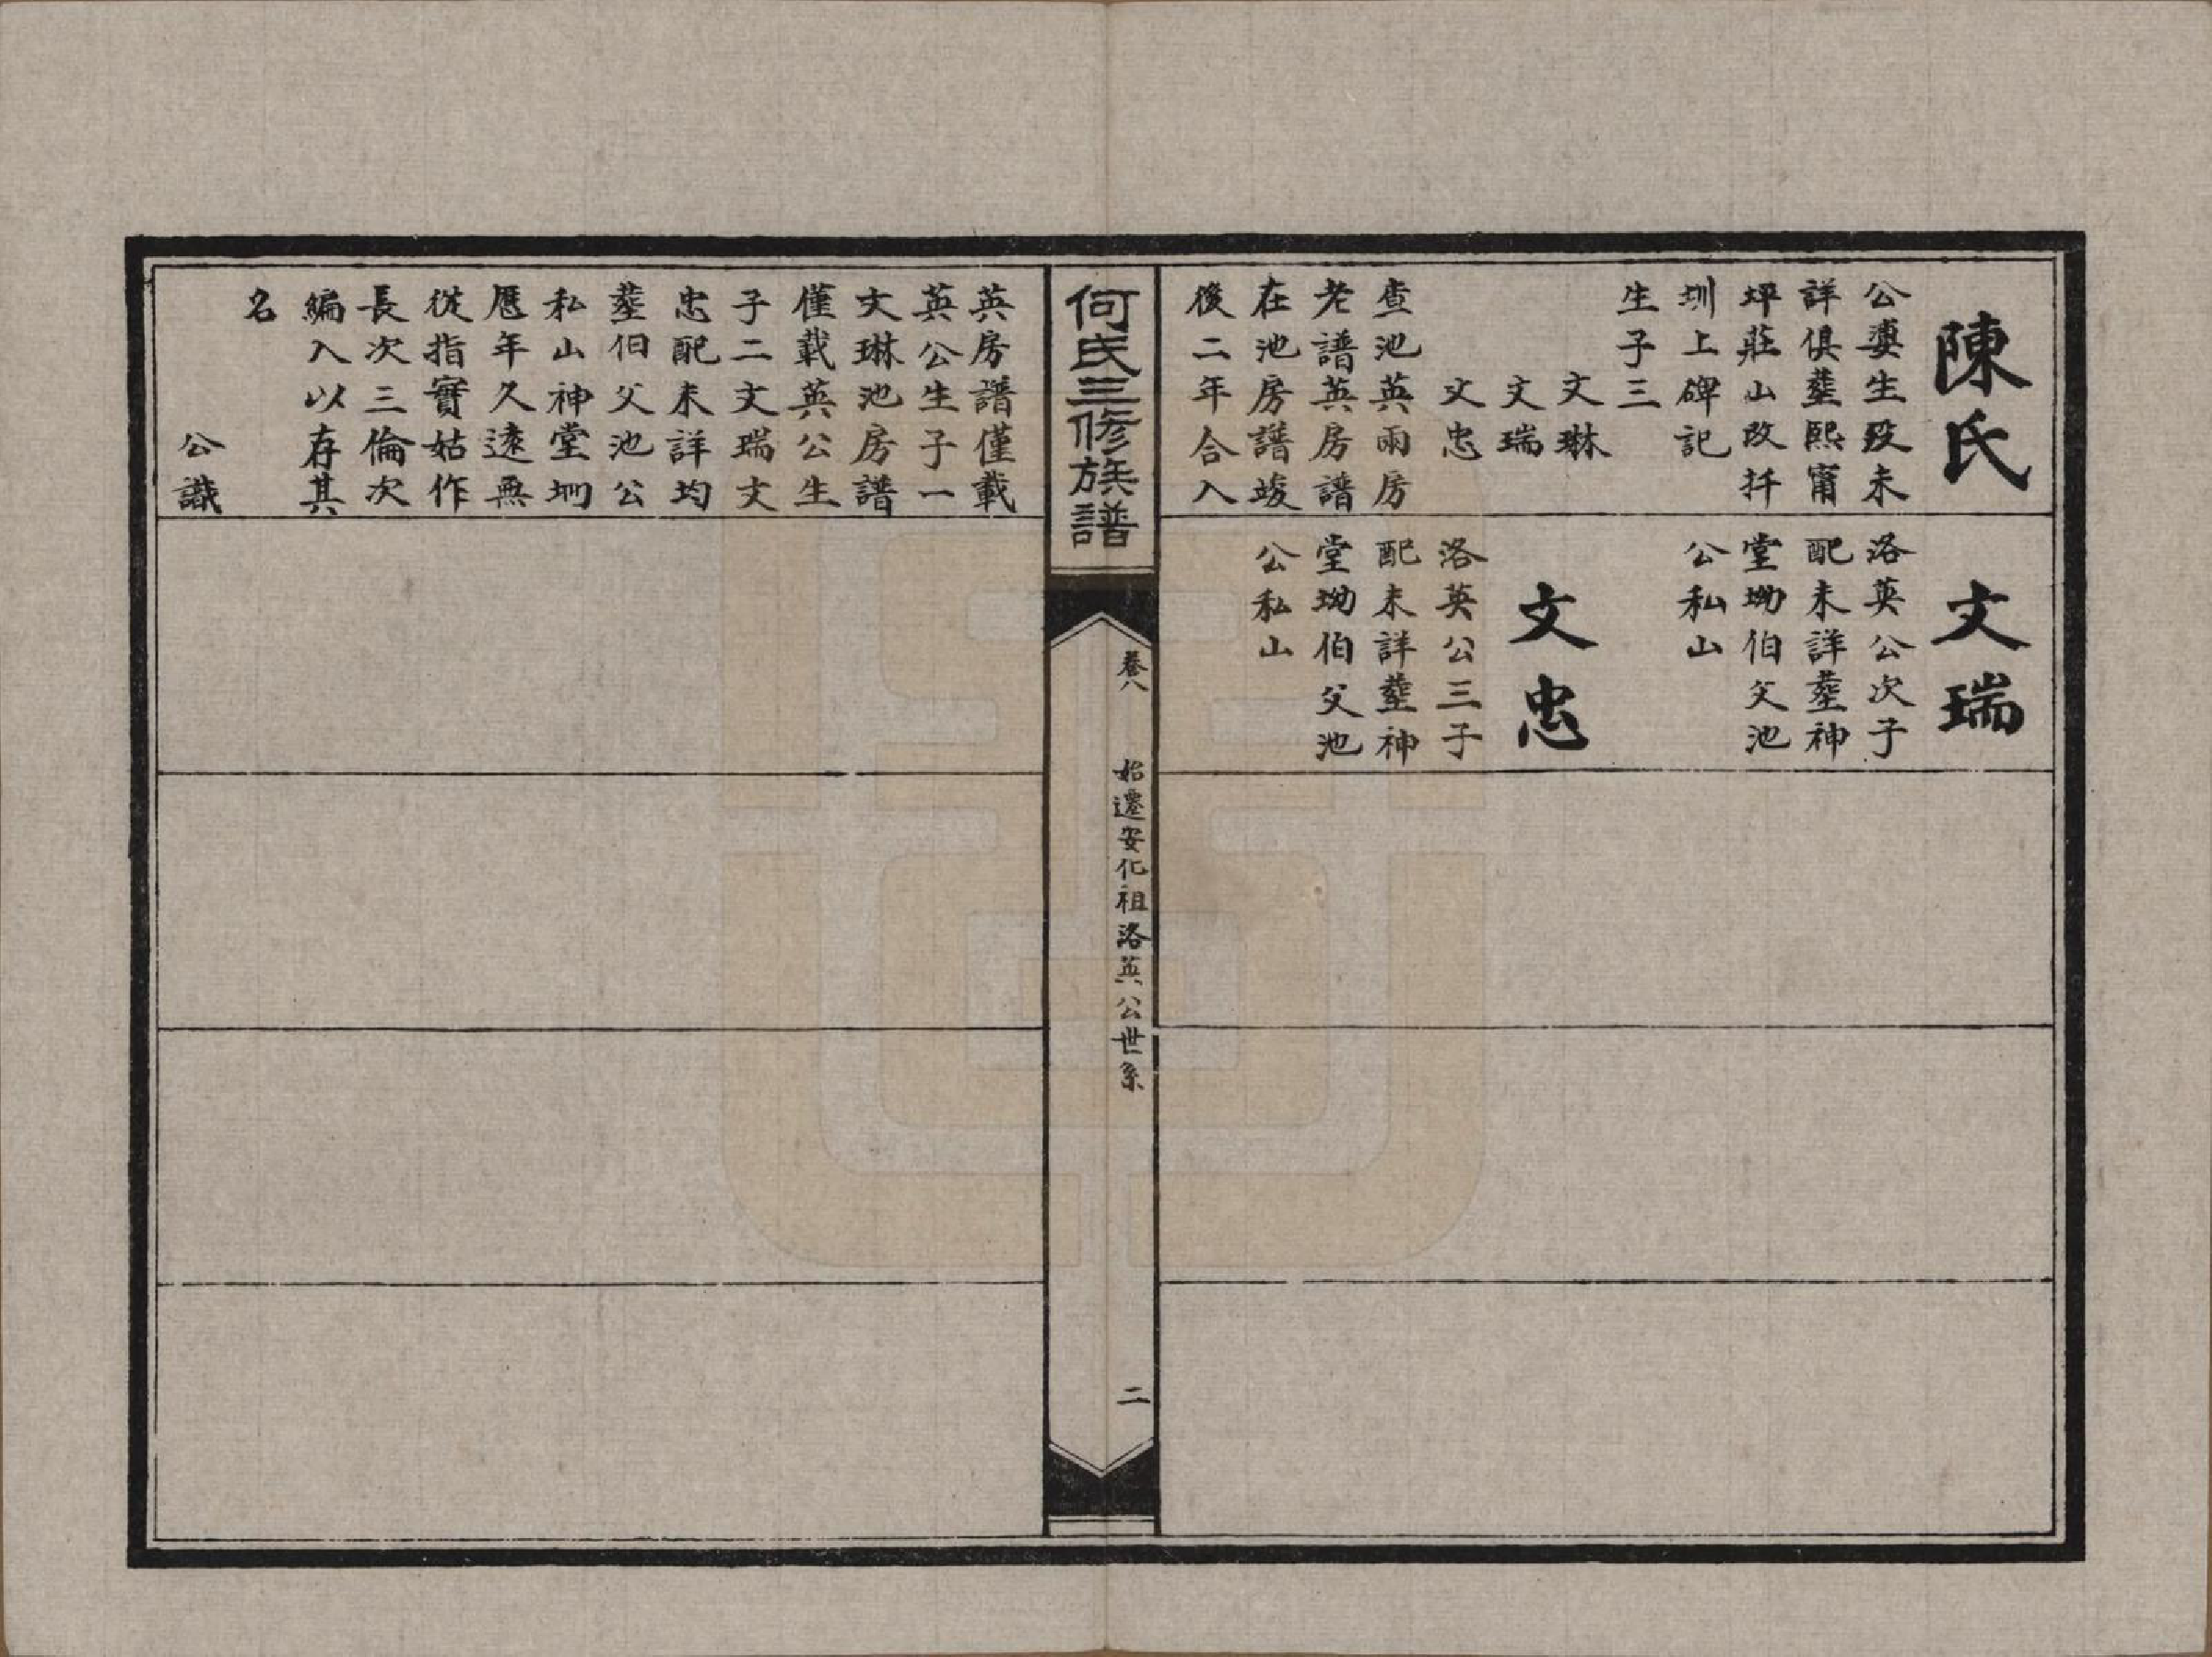 陳氏
公妻生歿未
詳俱塟熙甯
坪莊山改扦
圳上碑記
生子三
文琳
文瑞
文忠
查池英兩房
老譜英房譜
在池房譜竣
後二年合入
文瑞
洛英公次子
配未詳塟神
堂坳伯父池
公私山
文忠
洛英公三子
配未詳塟神
堂坳伯父池
公私山
何氏三修族譜
卷八
始遷安化祖洛英公世系
二
英房譜僅載
英公生子一
文琳池房譜
僅載英公生
子二文瑞文
忠配未詳均
塟伯父池公
私山神堂坳
應年久遠無
從指實姑作
長次三倫次
編入以存其
名
公識